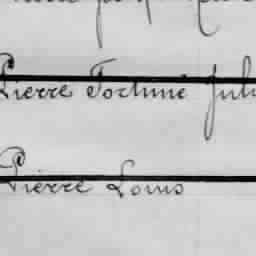 Pierre Fortuné Jul
Pierre Louis